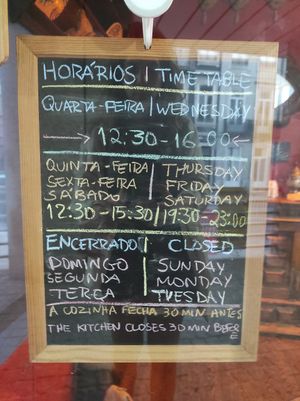 HORÁRIOS | TIME TABLE
QUARTA-FEIRA | WEDNESDAY
→ 12:30-16:00 ←
QUINTA-FEIRA | THURSDAY
SEXTA-FEIRA | FRIDAY
SÁBADO | SATURDAY
12:30-15:30 | 19:30-23:00
ENCERRADO | CLOSED
DOMINGO SUNDAY
SEGUNDA MONDAY
TERÇA TUESDAY
A COZINHA FECHA 30 MIN ANTES
THE KITCHEN CLOSES 30 MIN BEFOR
E